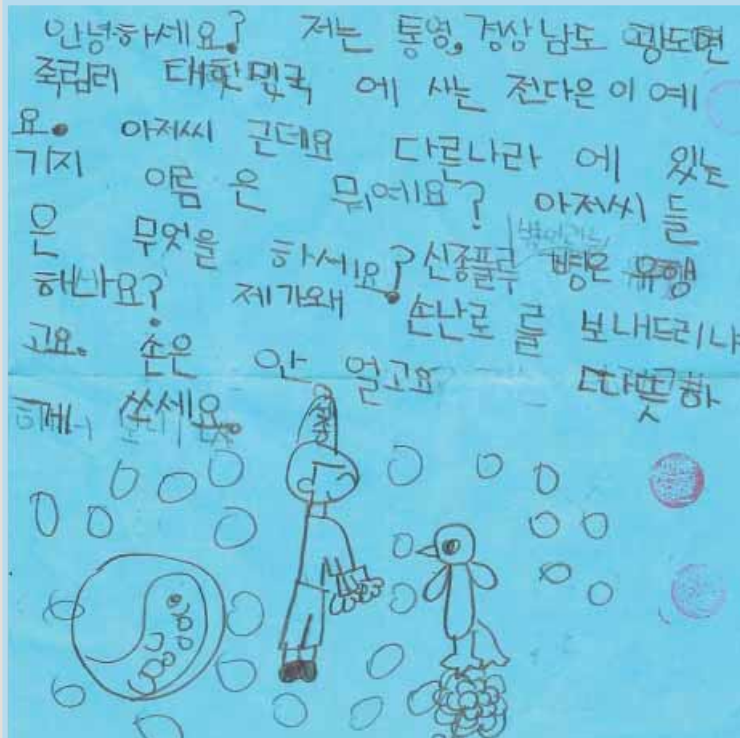 안녕하세요? 저는 통영,경상남도 광도면
죽림리 대한민국 에 사는 전다은이예
요. 아저씨 근데요 다른나라 에 있는
기지 이름은 뭐예요? 아저씨 들
은 무엇을 하세요? 신종플루 병은 유행
해나요? 제가왜 손난로 를 보내드리냐
고요. 손은 안 얼고요 따뜻하
게 쓰세요.